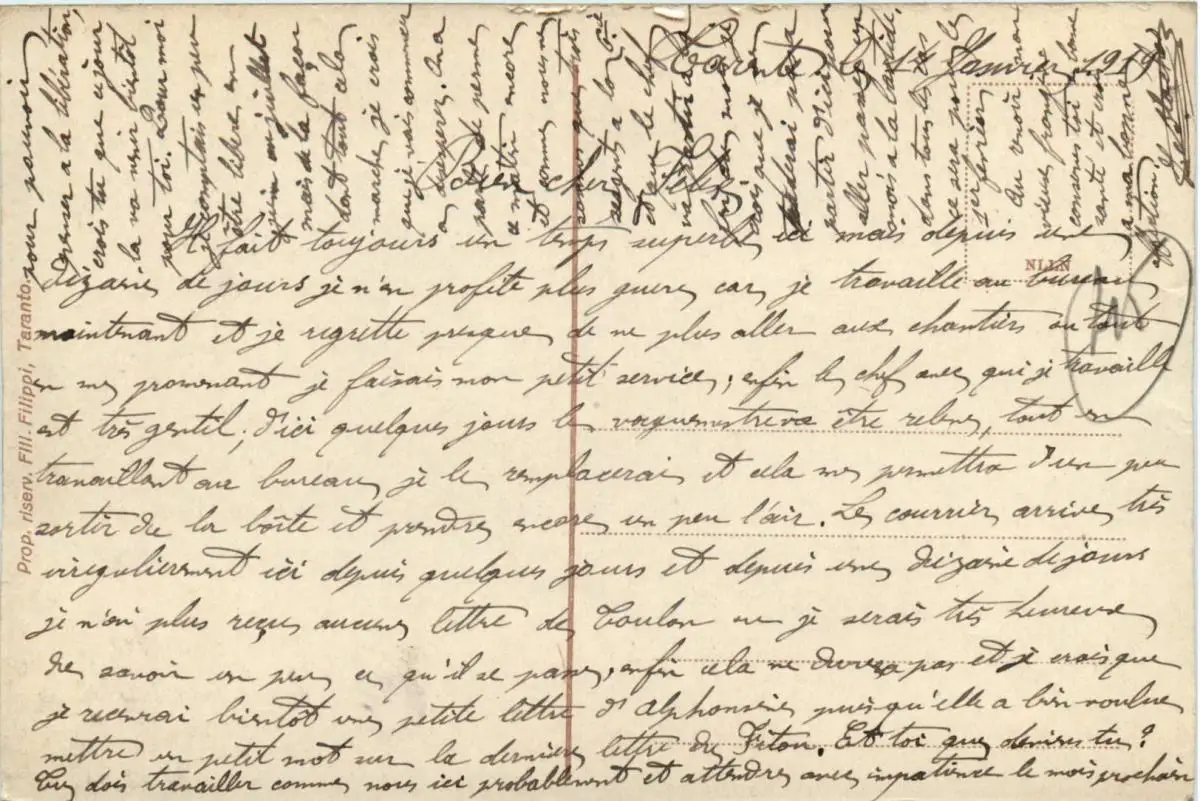 Tarente, le 14 Janvier 1919
Bien cher Félix
Il fait toujours un temps superbe ici mais depuis une
dizaine de jours je n'en profite plus guère car je travaille au bureau
maintenant et je regrette presque de ne plus aller aux chantiers ou tout
en me promenant je faisais mon petit service; enfin le chef avec qui je travaille
est très gentil; d'ici quelques jours le vaguemestre va être relevé, tout en
travaillant au bureau je le remplacerai et cela me permettra d'un peu
sortir de la boîte et prendre encore un peu l'air. Le courrier arrive très
irrégulièrement ici depuis quelques jours et depuis une dizaine de jours
je n'ai plus reçu aucune lettre de Toulon ou je serais très heureux
de savoir un peu ce qu'il se passe, enfin cela ne durera pas et je crois que
je recevrai bientôt une petite lettre d'Alphonsine puisqu'elle a bien voulue
mettre un petit mot sur la dernière lettre de Titou. Et toi que deviens tu?
Tu dois travailler comme nous ici probablement et attendre avec impatience le mois prochain
pour pouvoir
penser a la libération,
crois tu que ce jour
la va venir bientôt
pour toi. Pour moi
je comptais un peu
être libre en
juin ou juillet
mais de la façon
dont tout cela
marche je crois
que je vais commencer
a désespérer. On a
parlé de perme
ce matin encore
et comme nous ne
sommes que trois
sergents a la Cie
et que le chef
partir d'ici pour
aller passer un
mois a la
dans tous les cas
ce sera pour le
1er février
Au revoir mon
vieux frangin
conserve toi bonne
santé et crois
a ma bonne
affection,
NLLN
Prop. riserv. Filli. Filippi, Taranto.